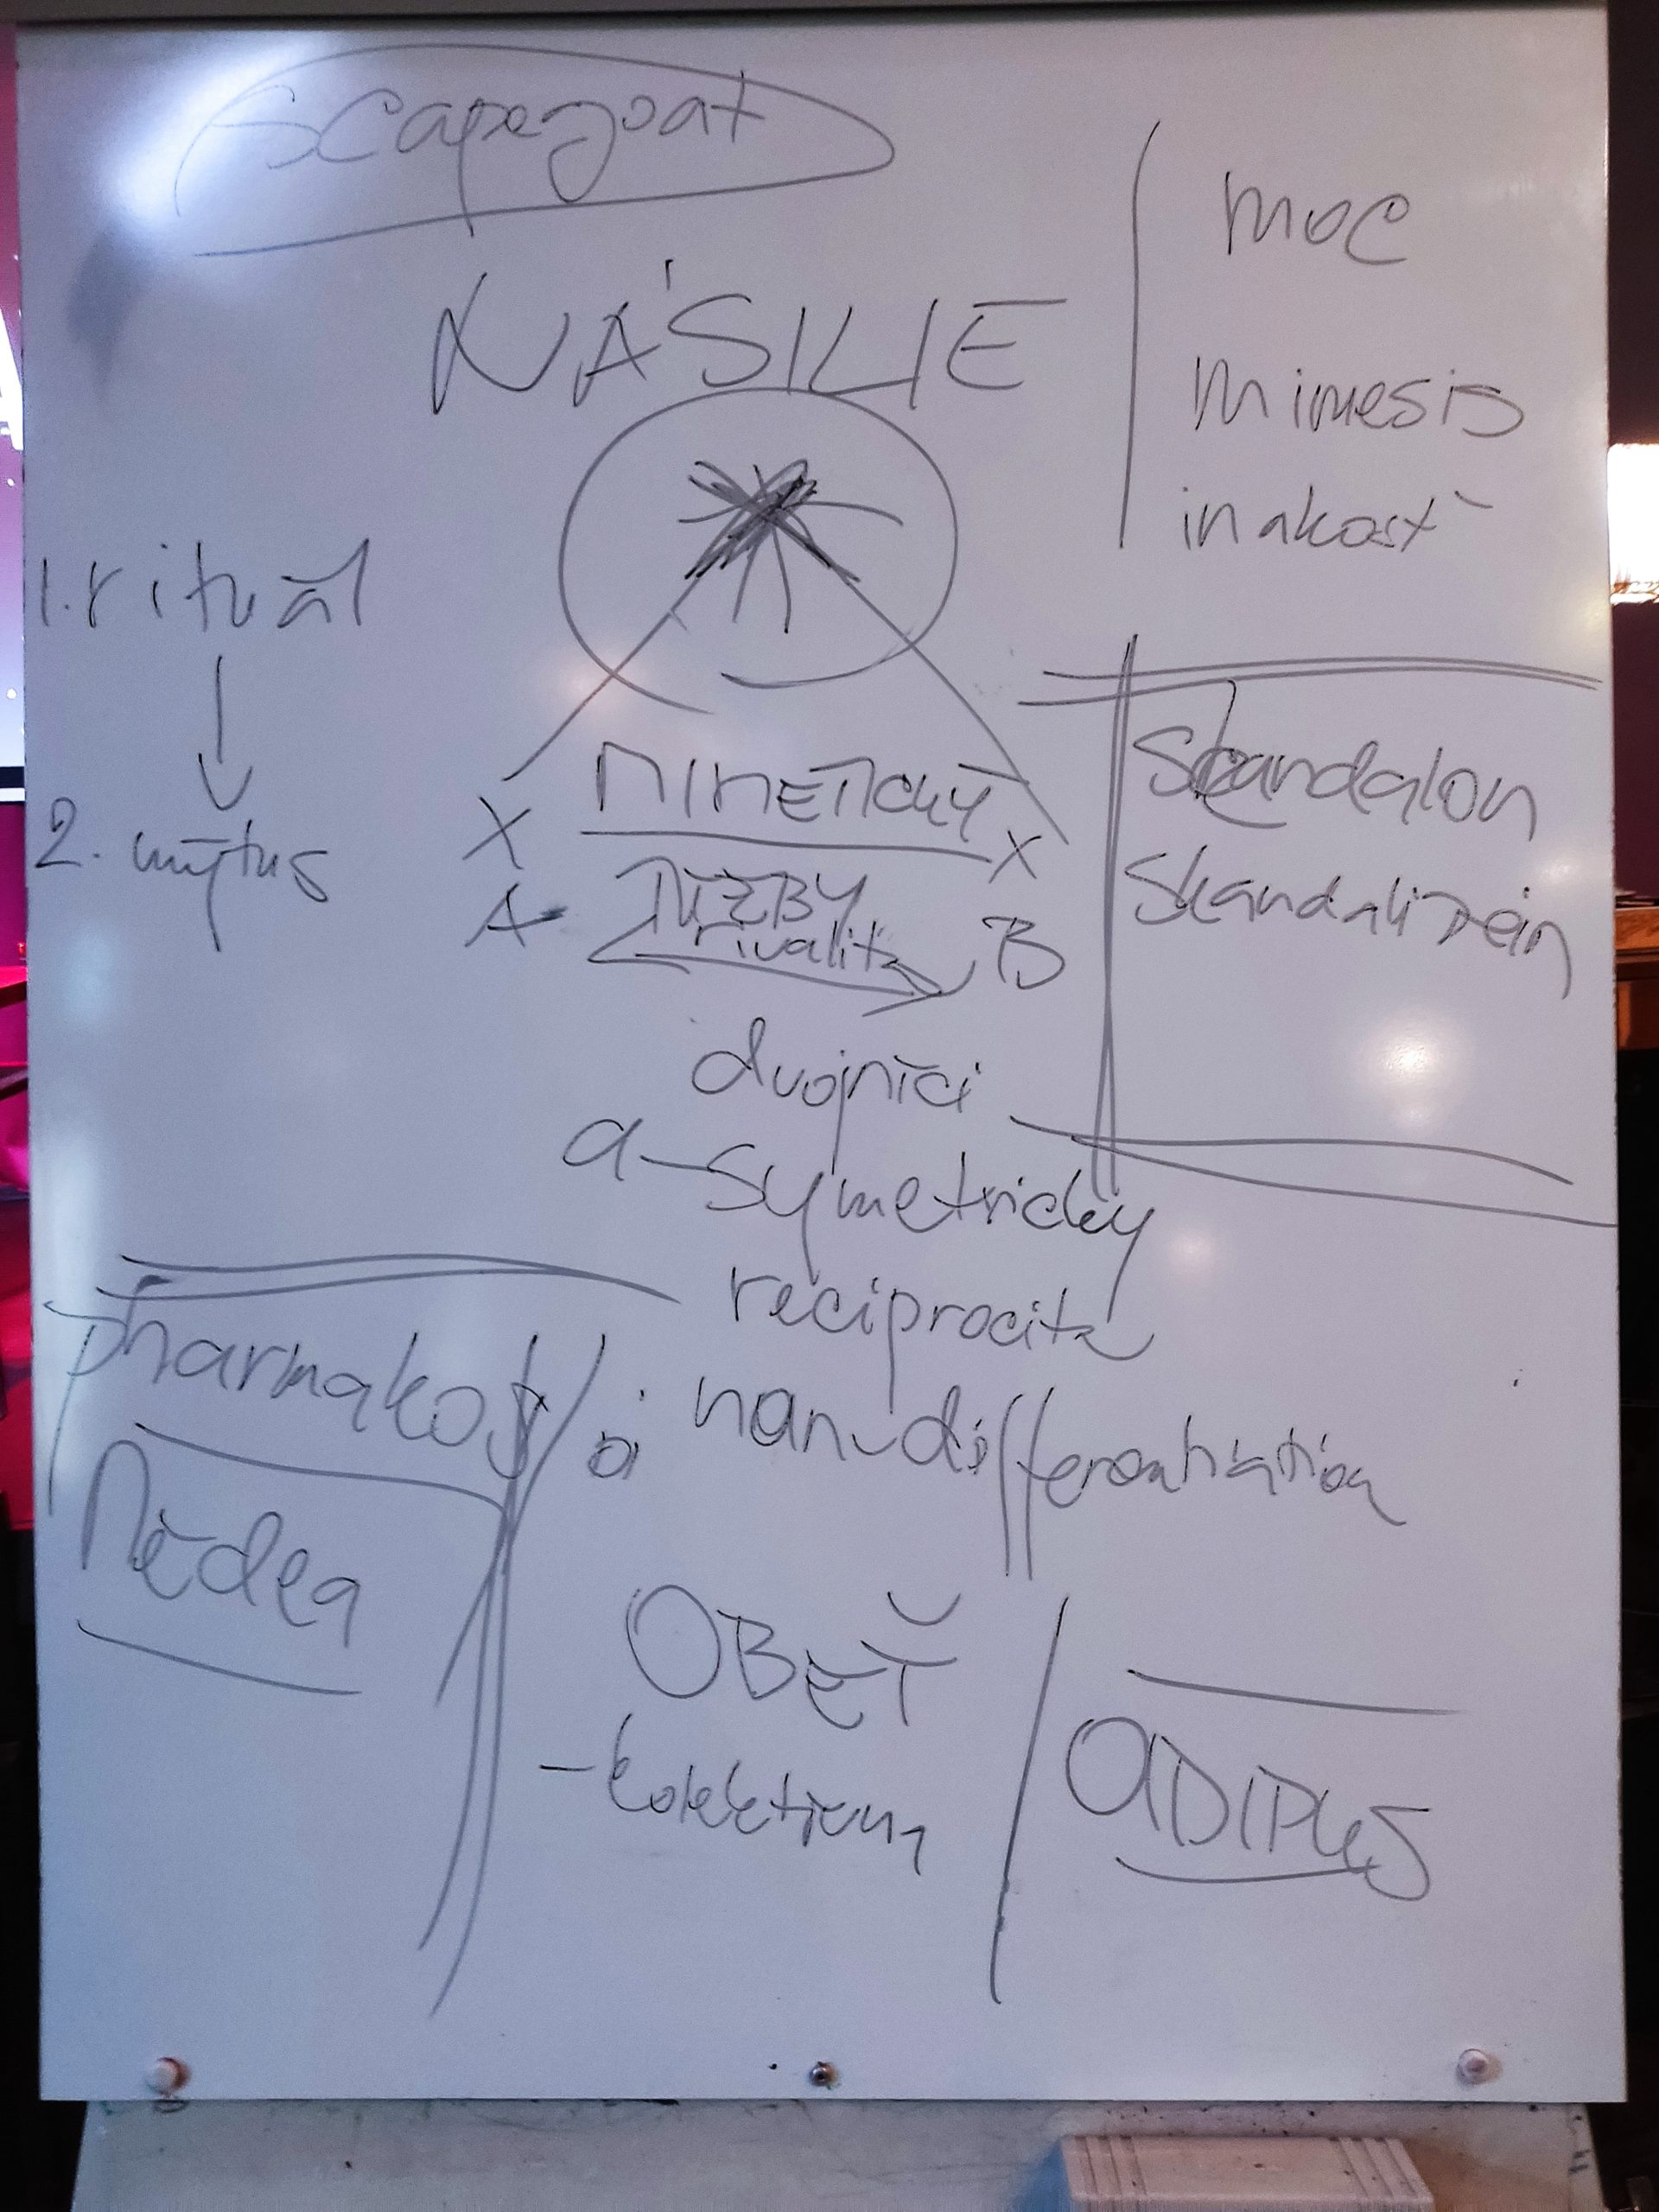 scapegoat
NÁSILIE
moc
mimesis
inakosť
1. rituál
2. mýtus
MIMETICKÝ
X X
TÚŽBY
A B
rivalita
Skandalon
Skandalizein
dvojníci
a-symetrický
reciprocita
pharmakos/oi
non-differentiation
Médea
OBEŤ
- kolektívny
OIDIPUS